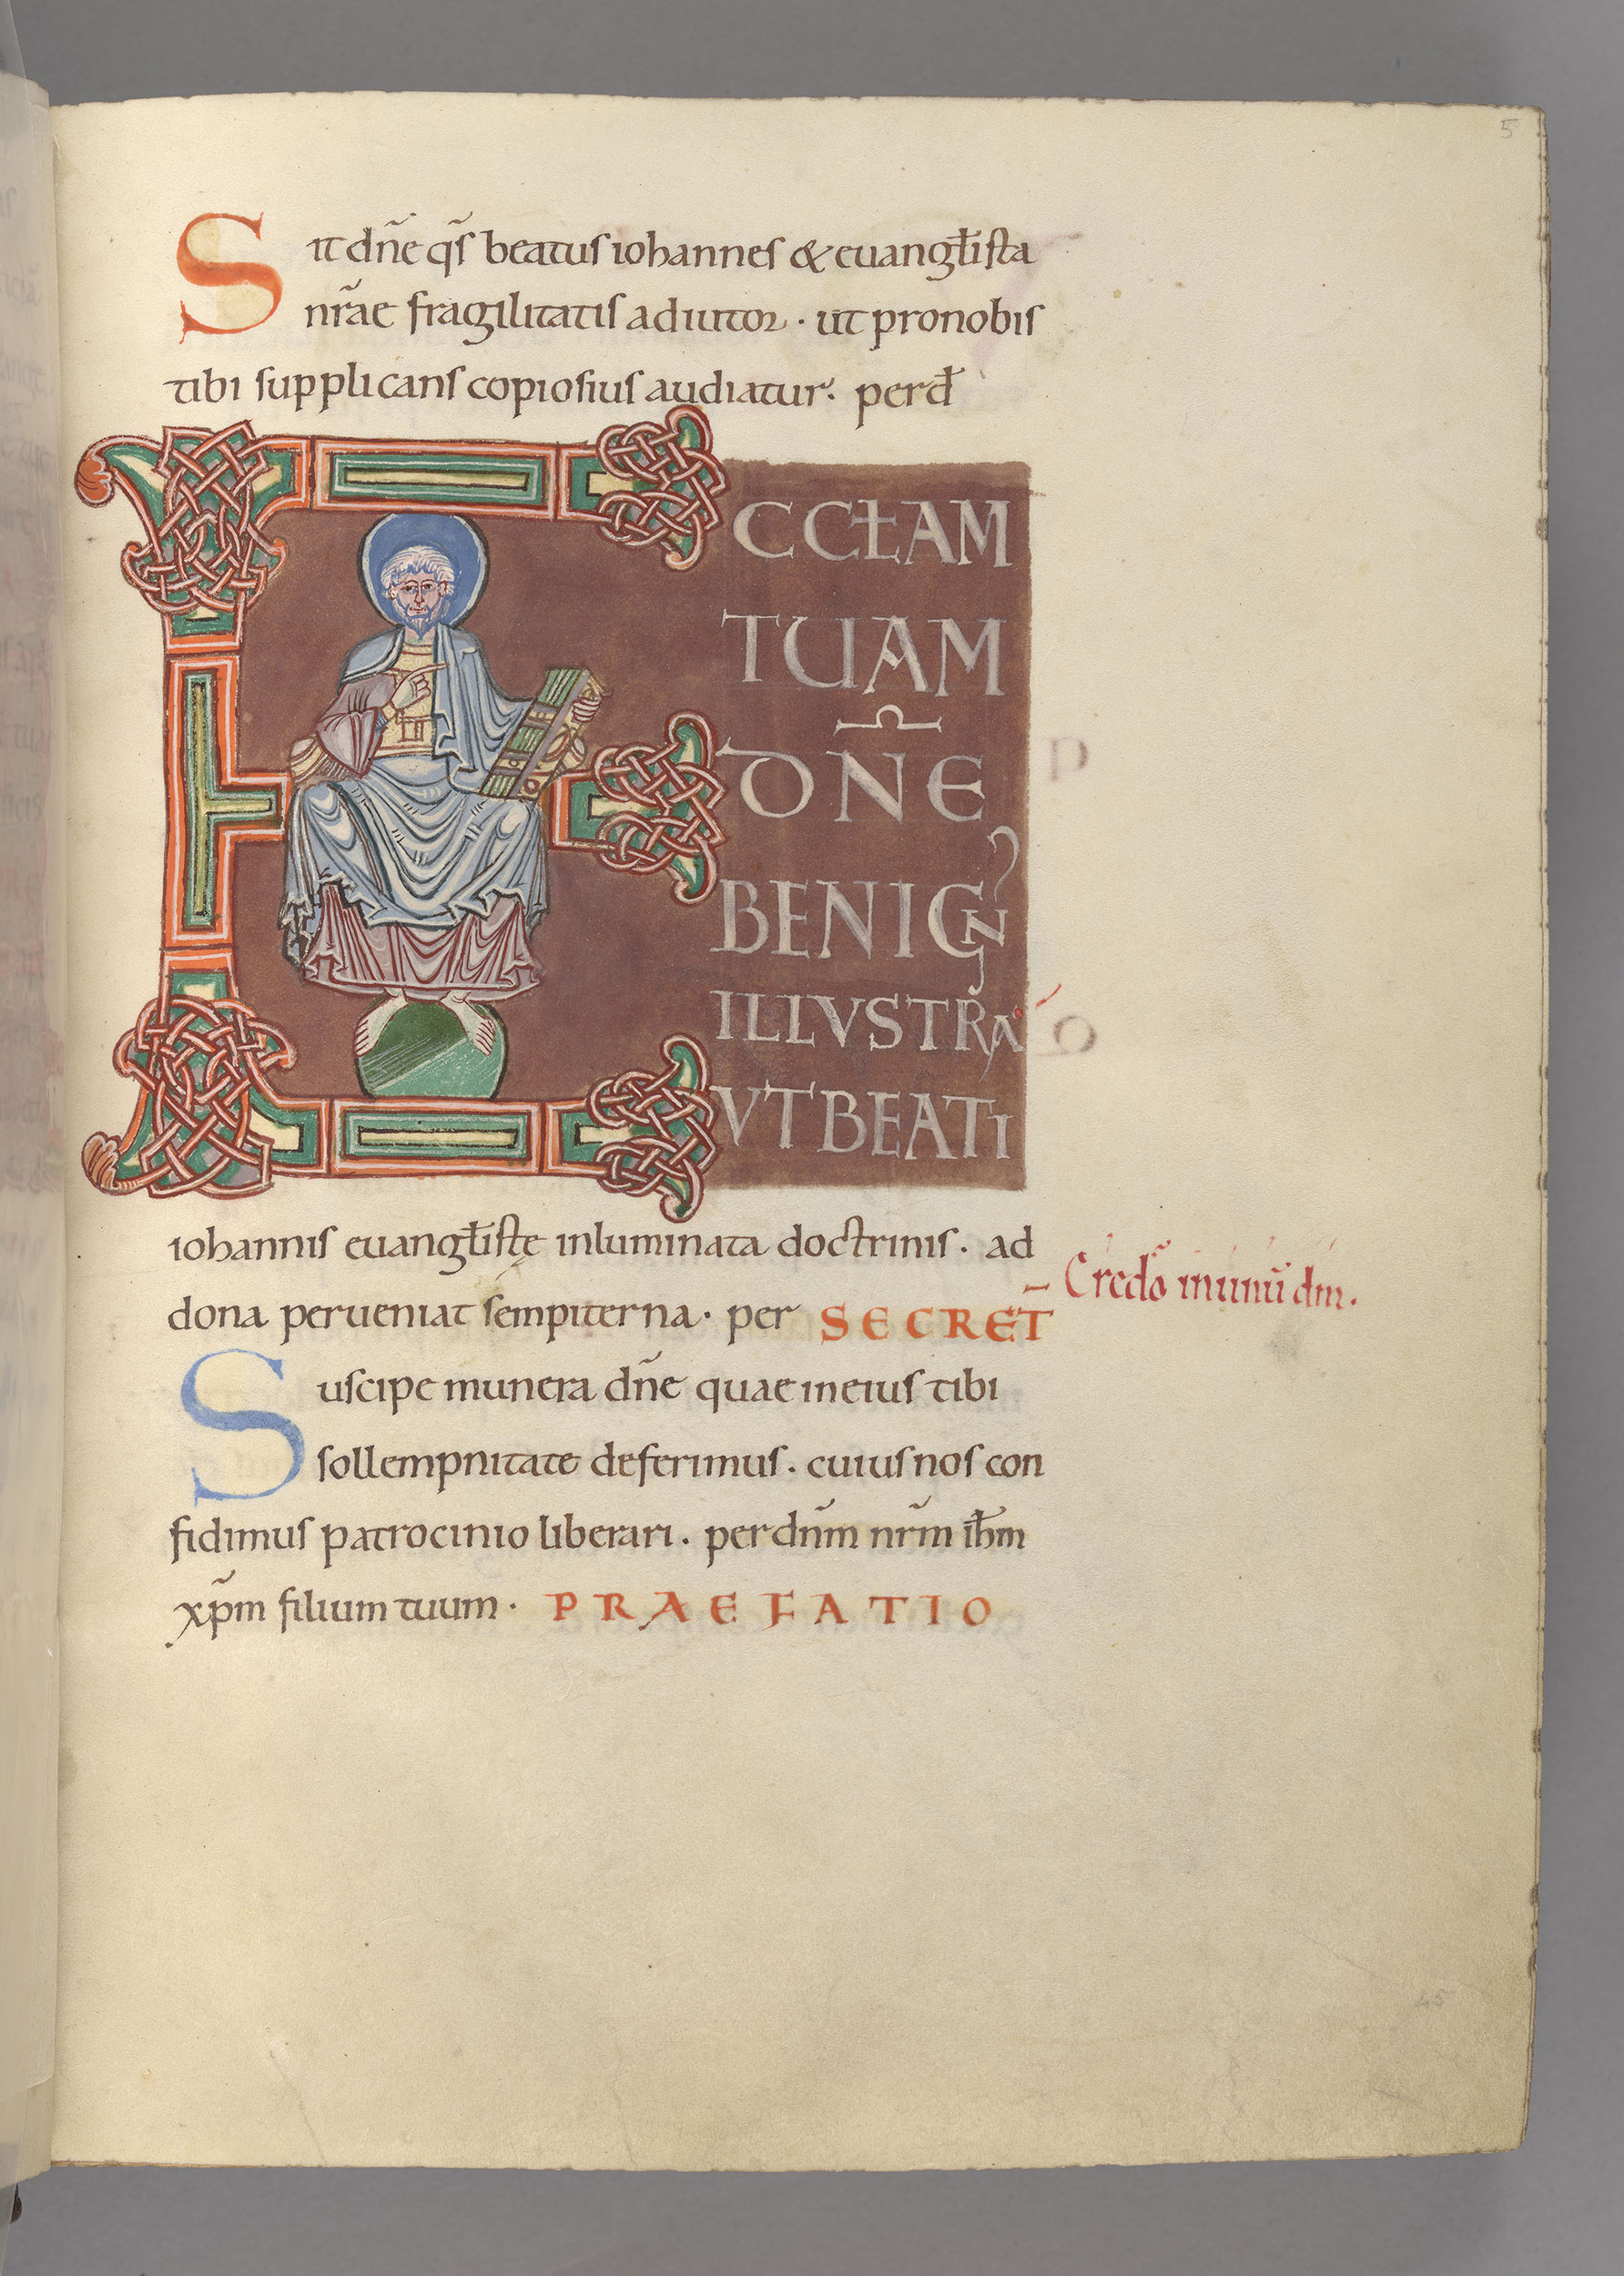 5
Sit dñe q̃s beatus iohannes & euangłista
nr̃ae fragilitatis adiutor · ut pronobis
tibi supplicans copiosius audiatur · perd̄
ECCŁAM
TUAM
DNE
BENIGN
ILLVSTRA
VTBEATI
iohannis euangłistę inluminata doctrinis · ad
dona perueniat sempiterna · per SECRET̄
Credo in unū dm̄.
Suscipe munera dñe quae in eius tibi
sollempnitate deferimus · cuius nos con
fidimus patrocinio liberari · per dñm nr̃m ih̄m
xp̃m filium tuum · PRAEFATIO